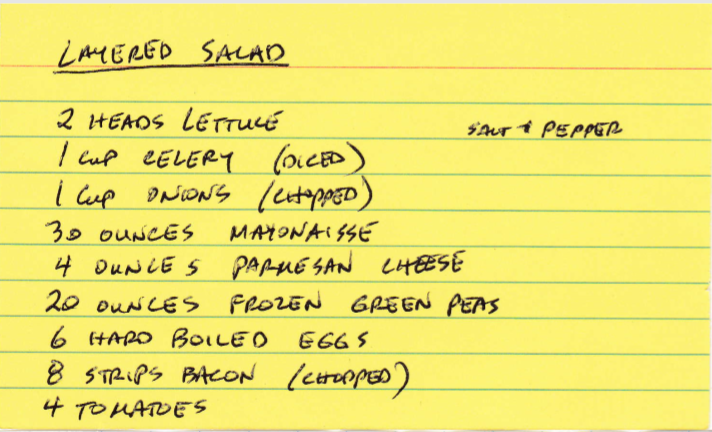 LAYERED SALAD
2 HEADS LETTUCE
SALT & PEPPER
1 CUP CELERY (DICED)
1 CUP ONIONS (CHOPPED)
30 OUNCES MAYONAISSE
4 OUNCES PARMESAN CHEESE
20 OUNCES FROZEN GREEN PEAS
6 HARD BOILED EGGS
8 STRIPS BACON (CHOPPED)
4 TOMATOES